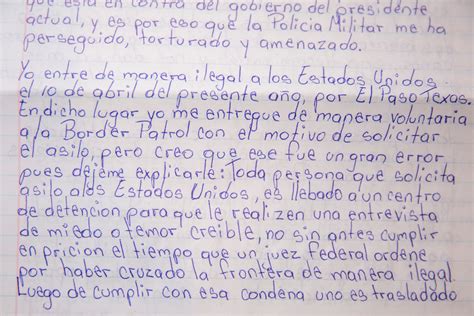 que está en contra del gobierno del presidente
actual, y es por eso que la Policia Militar me ha
perseguido, torturado y amenazado.
Yo entre de manera ilegal a los Estados Unidos
el 10 de abril del presente año, por El Paso Texas.
En dicho lugar yo me entregue de manera voluntaria
a la Border Patrol con el motivo de solicitar
el asilo, pero creo que ese fue un gran error
pues dejeme explicarle: Toda persona que solicita
asilo a los Estados Unidos, es llebado a un centro
de detencion para que le realizen una entrevista
de miedo o temor creible, no sin antes cumplir
en pricion el tiempo que un juez federal ordene
por haber cruzado la frontera de manera ilegal.
Luego de cumplir con esa condena uno es trasladado